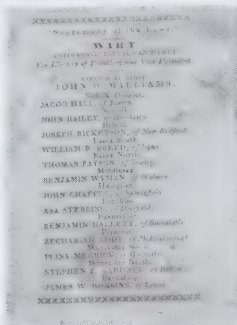 "Supremacy of the Laws."
WIRT
For Electors of President and Vice President
JOHN D. WILLIAMS.
Suffolk District.
JACOB HALL, of Boston
Norfolk
JOHN BAILEY, of Dorchester
Bristol
JOSEPH RICKETSON, of New Bedford
Essex South
WILLIAM B. BREED, of Lynn
Essex North
THOMAS PAYSON, of Rowley
Middlesex
BENJAMIN WYMAN, of Woburn
Hampden
JOHN of Springfield
Franklin
ASA STEBBINS, of Deerfield
Barnstable
BENJAMIN HALLETT, of Barnstable
Plymouth
ZECHARIAH EDDY, of Middleborough
Worcester South
PLINY MERRICK, of Worcester
Worcester North
STEPHEN P. GARDNER, of Bolton
Berkshire
JAMES W. ROBBINS, of Lenox